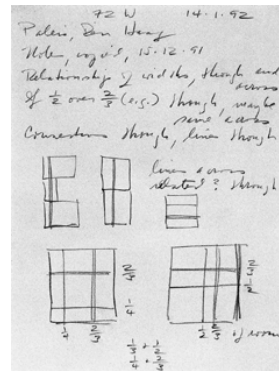 72 W 14.1.92
Paleis, Den Haag
Notes, 15.12.91
Relationship of widths, though and across
If 1/2 over 2/3 (e.g.) though, maybe same across
Connections though, lines though
lines across
related? though
2/3
1/4
1/4 2/3
1/2 2/3 of room
1/3 + 1/2
1/4 + 2/3